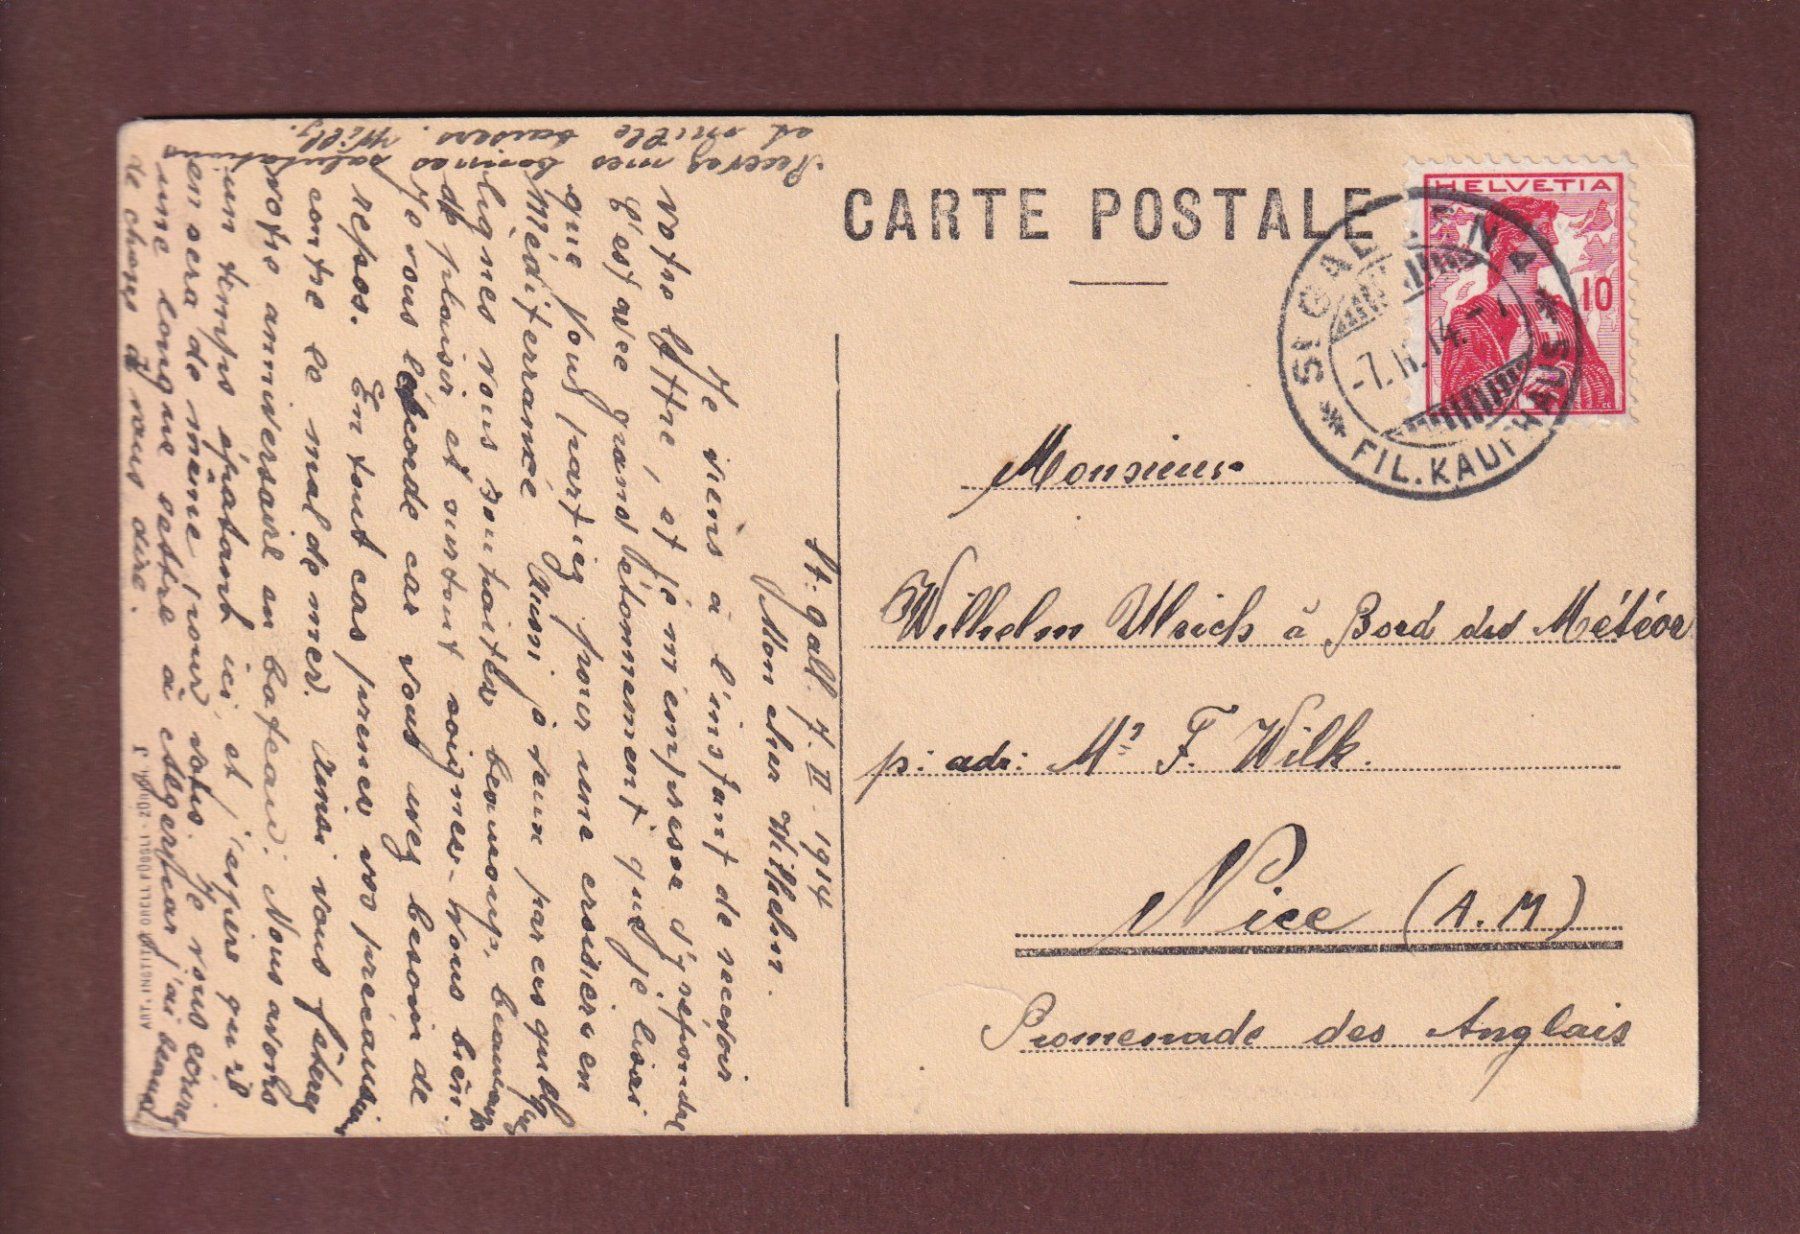 CARTE POSTALE
HELVETIA
10
ST GALLEN 4
-7.II.14.-
FIL. KAUFHAUS
Monsieur
Wilhelm Ulrich à Bord du Météor
p: adr: Mr F. Wilk.
Nice (A.M)
Promenade des Anglais
St. Gall. 7. II. 1914
Mon cher Wilhelm.
Je viens à l'instant de recevoir
votre lettre, et je m'empresse d'y répondre
C'est avec grand étonnement que je lisai
que vous partiez pour une croisière en
Méditerranée Aussi je veux par ces quelq
lignes vous souhaiter beaucoup, beaucoup
de plaisir et surtout soigner-vous bien.
Je vous l'accorde car vous avez besoin de
repos. En tout cas prenez vos précautions
contre le mal de mer. Ainsi vous fêterez
votre anniversaire en bateau. Nous avons
un temps épatant ici, et j'espère qu'il
en sera de même pour vous. Je vous écrirez
une longue lettre à car j'ai beaucoup
de choses à vous dire.
Recevez mes bonnes salutations
et mille baisers. Willy.
ART. INSTITUT ORELL FÜSSLI - ZÜRICH.